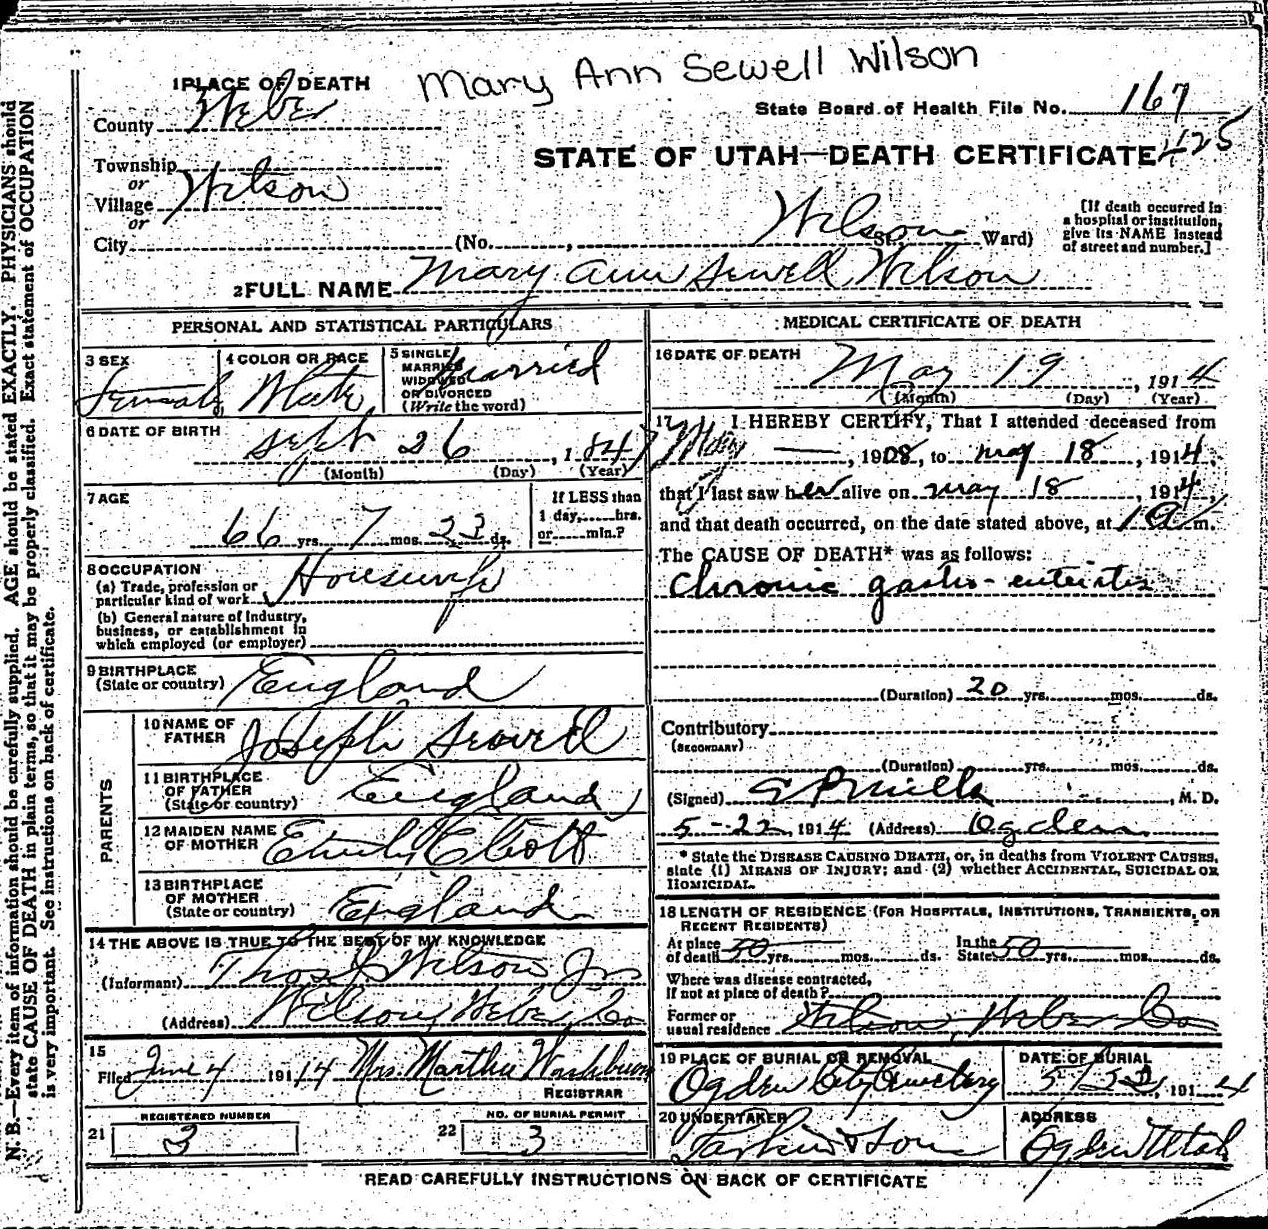 Mary Ann Sewell Wilson
1 PLACE OF DEATH
County Weber
State Board of Health File No. 167
425
STATE OF UTAH—DEATH CERTIFICATE
Township
or
Village Wilson
or
City (No. , Wilson St. Ward)
[If death occurred in a hospital or institution, give its NAME instead of street and number.]
2 FULL NAME Mary Ann Sewell Wilson
PERSONAL AND STATISTICAL PARTICULARS
3 SEX
Female
4 COLOR OR RACE
White
5 SINGLE
MARRIED
WIDOWED
OR DIVORCED
(Write the word)
Married
6 DATE OF BIRTH
Sept 26, 1847
(Month) (Day) (Year)
7 AGE
66 yrs. 7 mos. 23 ds.
If LESS than
1 day, hrs.
or min.?
8 OCCUPATION
(a) Trade, profession or
particular kind of work Housewife
(b) General nature of Industry,
business, or establishment in
which employed (or employer)
9 BIRTHPLACE
(State or country) England
PARENTS
10 NAME OF
FATHER Joseph Sewell
11 BIRTHPLACE
OF FATHER
(State or country) England
12 MAIDEN NAME
OF MOTHER Emily Elliott
13 BIRTHPLACE
OF MOTHER
(State or country) England
14 THE ABOVE IS TRUE TO THE BEST OF MY KNOWLEDGE
(Informant) Thos J Wilson Jr
(Address) Wilson, Weber, Co
15
Filed June 4 1914 Mrs. Martha Washburn
REGISTRAR
REGISTERED NUMBER
21 3
NO. OF BURIAL PERMIT
22 3
MEDICAL CERTIFICATE OF DEATH
16 DATE OF DEATH
May 19, 1914
(Month) (Day) (Year)
17 I HEREBY CERTIFY, That I attended deceased from
May —, 1908, to May 18, 1914,
that I last saw her alive on May 18, 1914,
and that death occurred, on the date stated above, at 1 a m.
The CAUSE OF DEATH* was as follows:
Chronic gastro-enteritis
(Duration) 20 yrs. mos. ds.
Contributory
(SECONDARY)
(Duration) yrs. mos. ds.
(Signed) E P Mills, M. D.
5-22, 1914 (Address) Ogden
* State the DISEASE CAUSING DEATH, or, in deaths from VIOLENT CAUSES,
state (1) MEANS OF INJURY; and (2) whether ACCIDENTAL, SUICIDAL OR
HOMICIDAL.
18 LENGTH OF RESIDENCE (FOR HOSPITALS, INSTITUTIONS, TRANSIENTS, OR
RECENT RESIDENTS)
At place
of death 50 yrs. mos. ds.
In the
State 50 yrs. mos. ds.
Where was disease contracted,
If not at place of death?
Former or
usual residence Wilson, Weber Co
19 PLACE OF BURIAL OR REMOVAL
Ogden City Cemetery
DATE OF BURIAL
5/22, 1914
20 UNDERTAKER
Larkin & Sons
ADDRESS
Ogden Utah
READ CAREFULLY INSTRUCTIONS ON BACK OF CERTIFICATE
N. B.—Every item of information should be carefully supplied. AGE should be stated EXACTLY. PHYSICIANS should
state CAUSE OF DEATH in plain terms, so that it may be properly classified. Exact statement of OCCUPATION
is very important. See instructions on back of certificate.